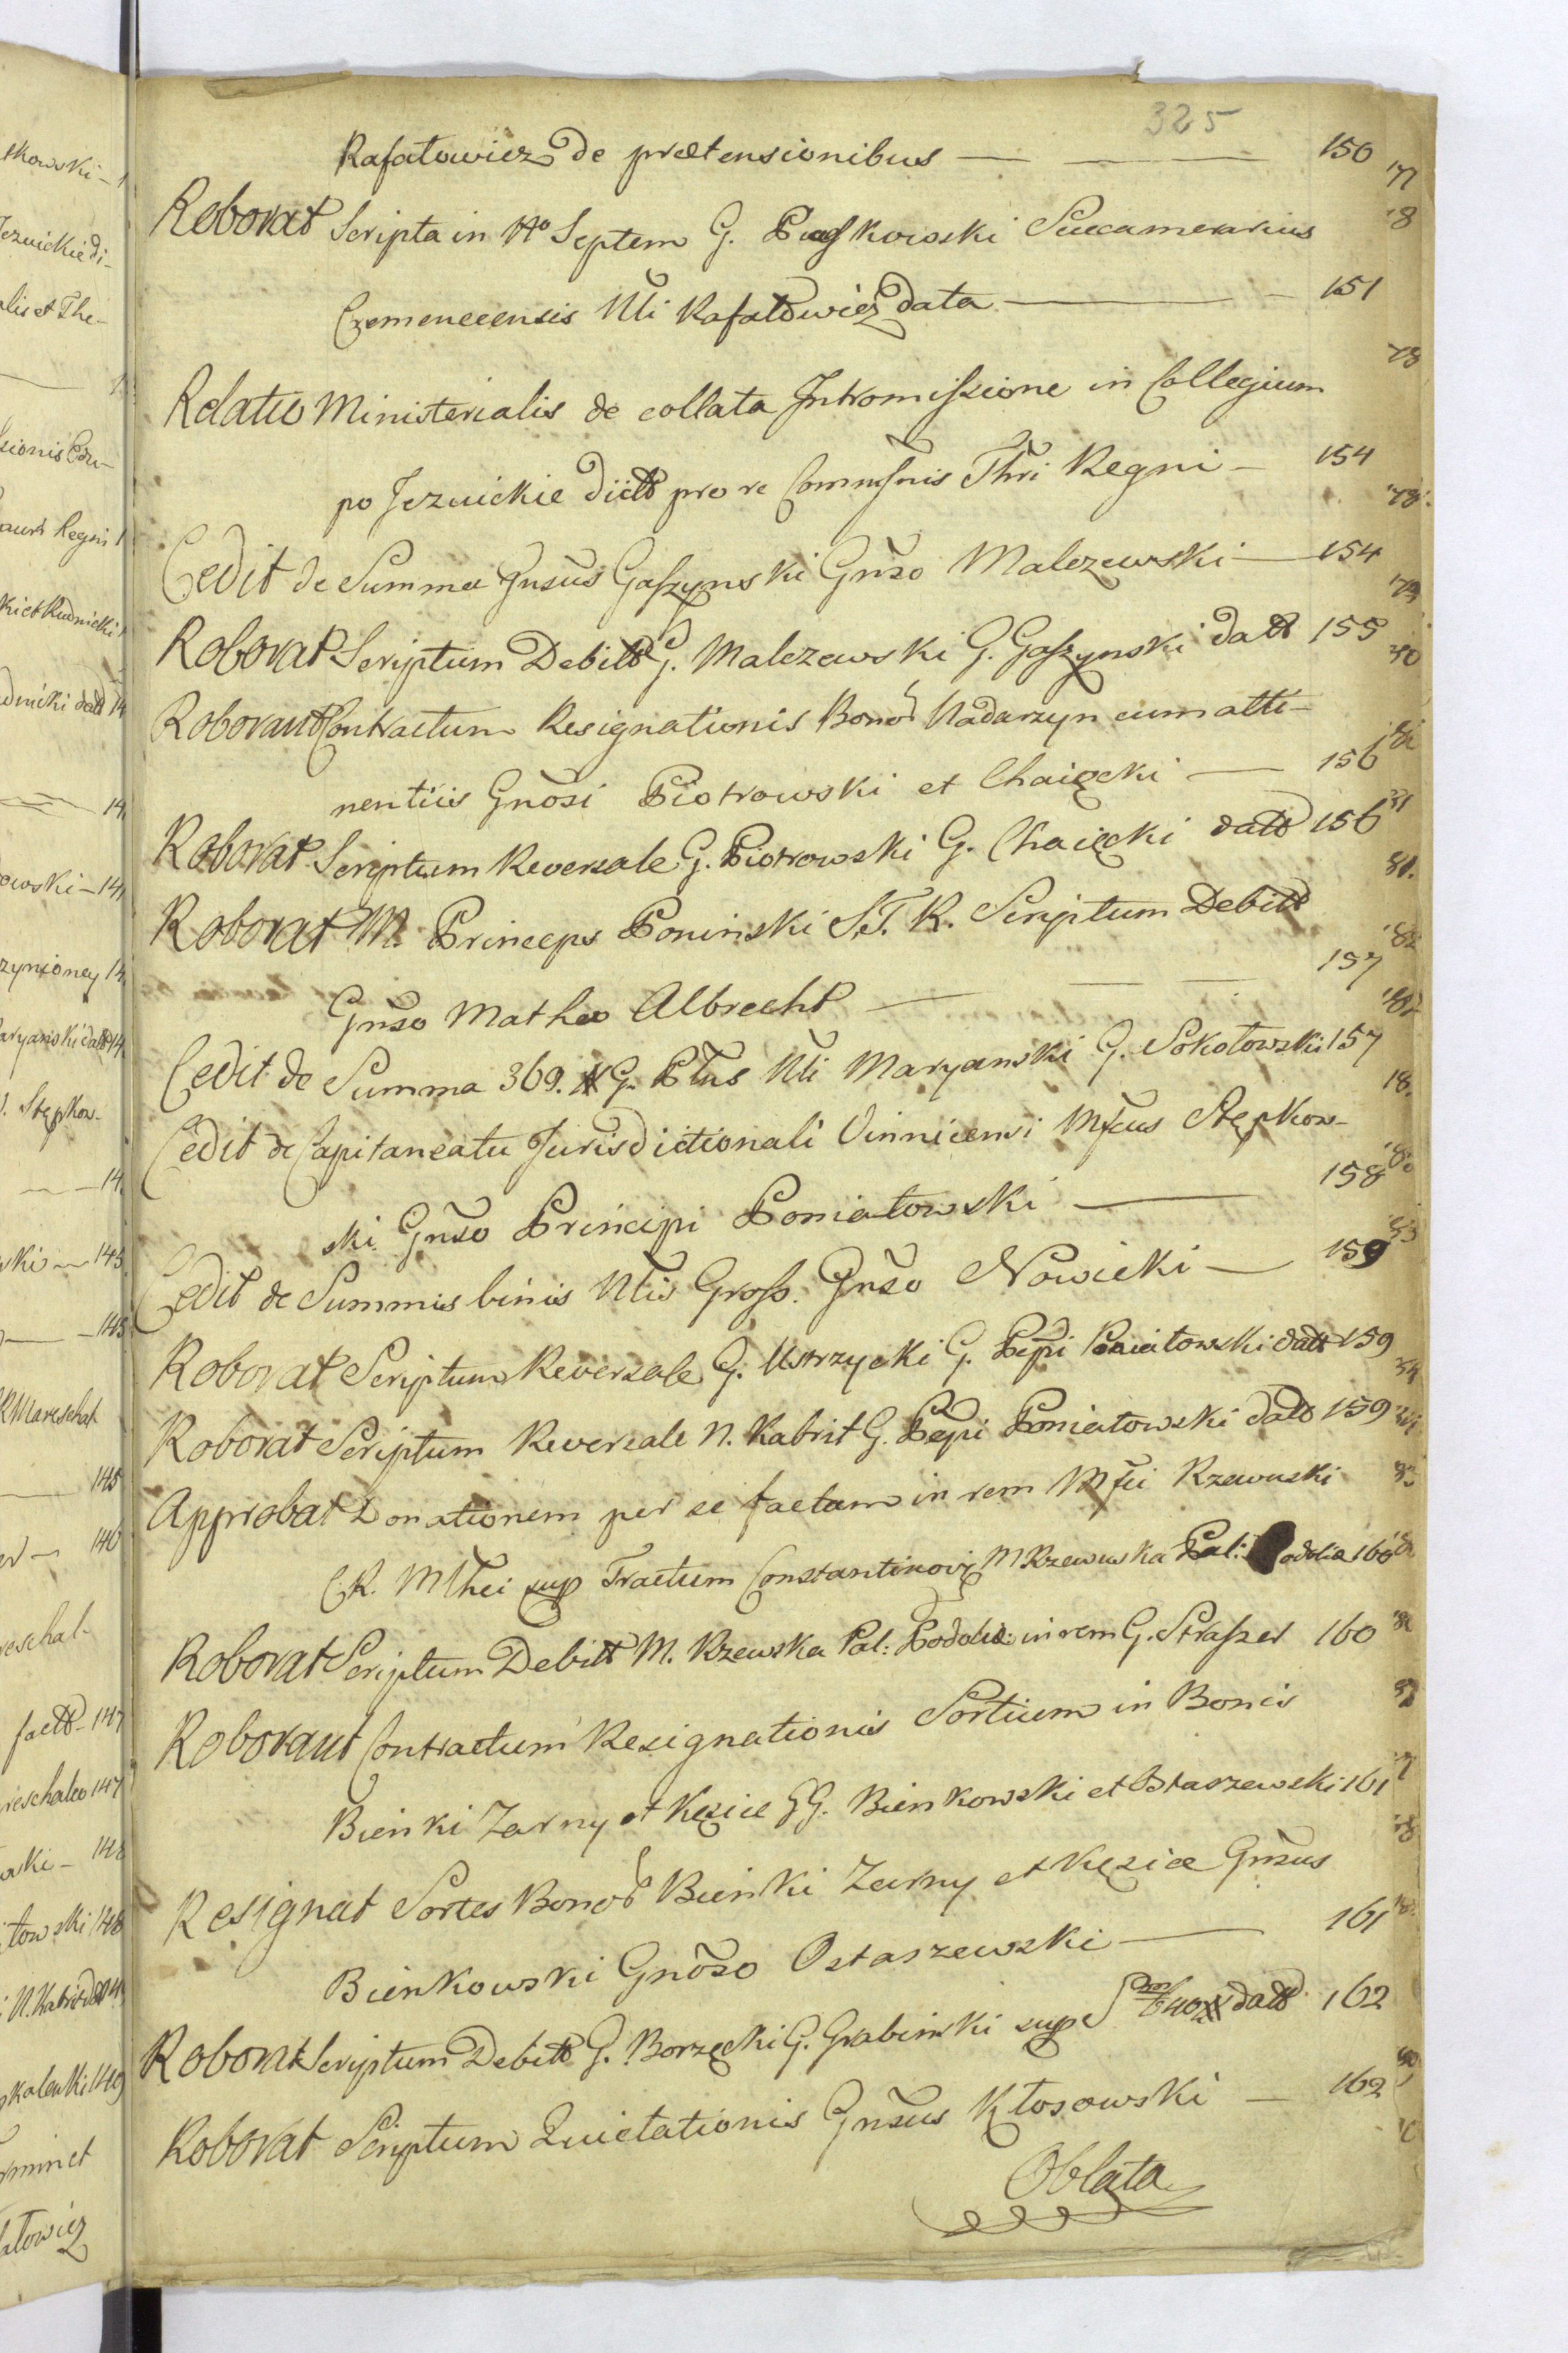 325
Rafałowicz de praetensionibus — — 150
Roborat Scripta in No Septem G. Puszkowski Succamerarius
Cremenecensis Nli Rafałowicz data — 151
Relatio Ministerialis de collata Intromissione in Collegium
po Jezuickie dictt pro re Commsnis Thri Regni — 154
Cedit de Summa Gnsus Gaszynski Gnso Malczewski — 154
Roborat Scriptum Debitt G. Malczewski G. Gaszynski datt 155
Roborant Contractum Resignationis Bonor Nadarzyn cum atti-
nentiis Gnosi Piotrowski et Chaięcki — 156
Roborat Scriptum Reversale G. Piotrowski G. Chaięcki datt 156
Roborat M. Princeps Poninski S.T.R. Scriptum Debitt
Gnso Matheo Albrecht — 157
Cedit de Summa 369. # G. Ptus Nli Maryanski G. Sokołowski 157
Cedit de Capitaneatu Jurisdictionali Vinnicensi Mfcus Stępkow-
ski Gnso Principi Poniatowski — 158
Cedit de Summis binis Nlis Gross. Gnso Nowicki — 159
Roborat Scriptum Reversale G. Ustrzycki G. Ppi Poniatowski datt 159
Roborat Scriptum Reversale N. Kabrit G. Ppi Poniatowski datt 159
Approbat Donationem per se factam in rem Mfci Rzewuski
CR. Mlhei sup Tractum Constantinov M Rzewuska Pal: Podoliæ 160
Roborat Scriptum Debitt M. Rzewska Pal: Podoliæ in rem G. Straszer 160
Roborant Contractum Resignationis Sortium in Bonis
Bieńki Zarny et Kęzice GG. Bieńkowski et Ostaszewski 161
Resignat Sortes Bonor Bieńki Zarny et Kęzice Gnsus
Bieńkowski Gnoso Ostaszewski — 161
Roborat Scriptum Debitt G. Borzęcki G. Grabinski sup datt 162
Roborat Scriptum Quietationis Gnsus Kłosowski — 162
Oblata